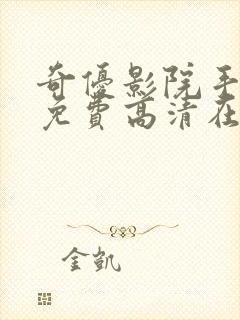 奇優影院手
免費高清在
金凱